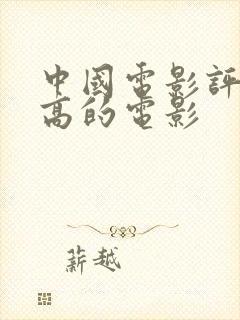 中國電影評
高的電影
薪越